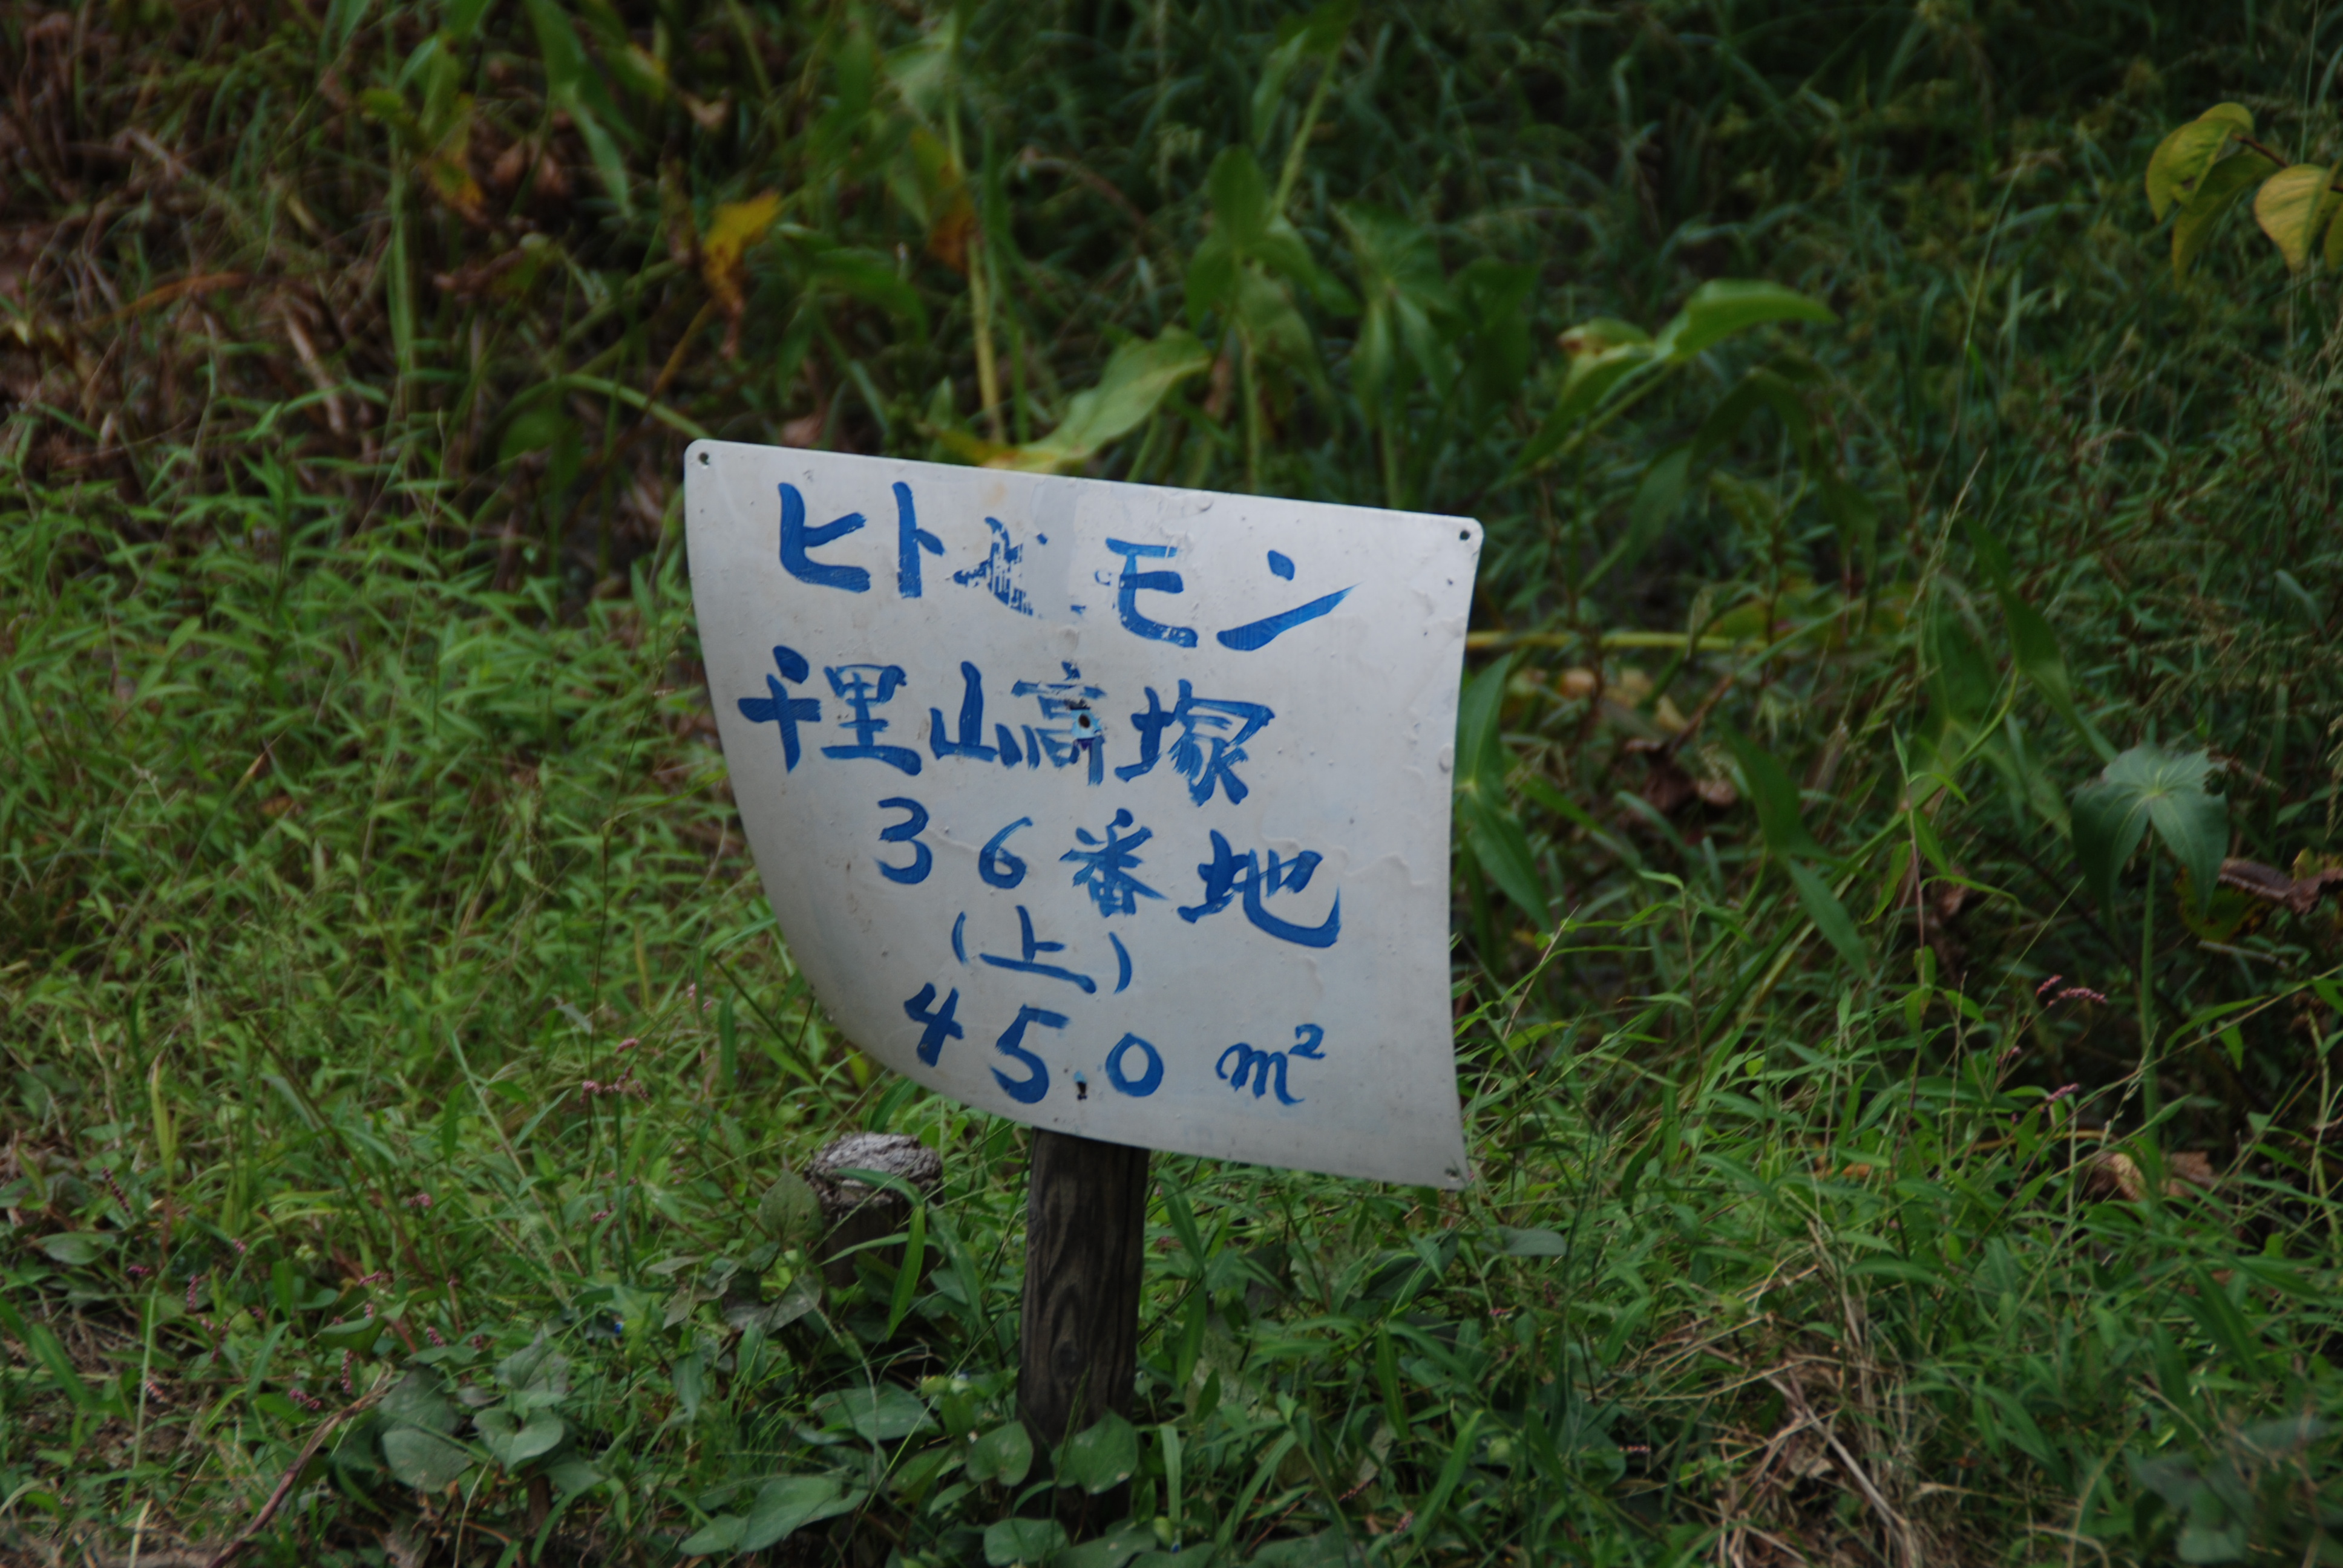 ヒトモン
千里山高塚
36番地
(上)
450 m²